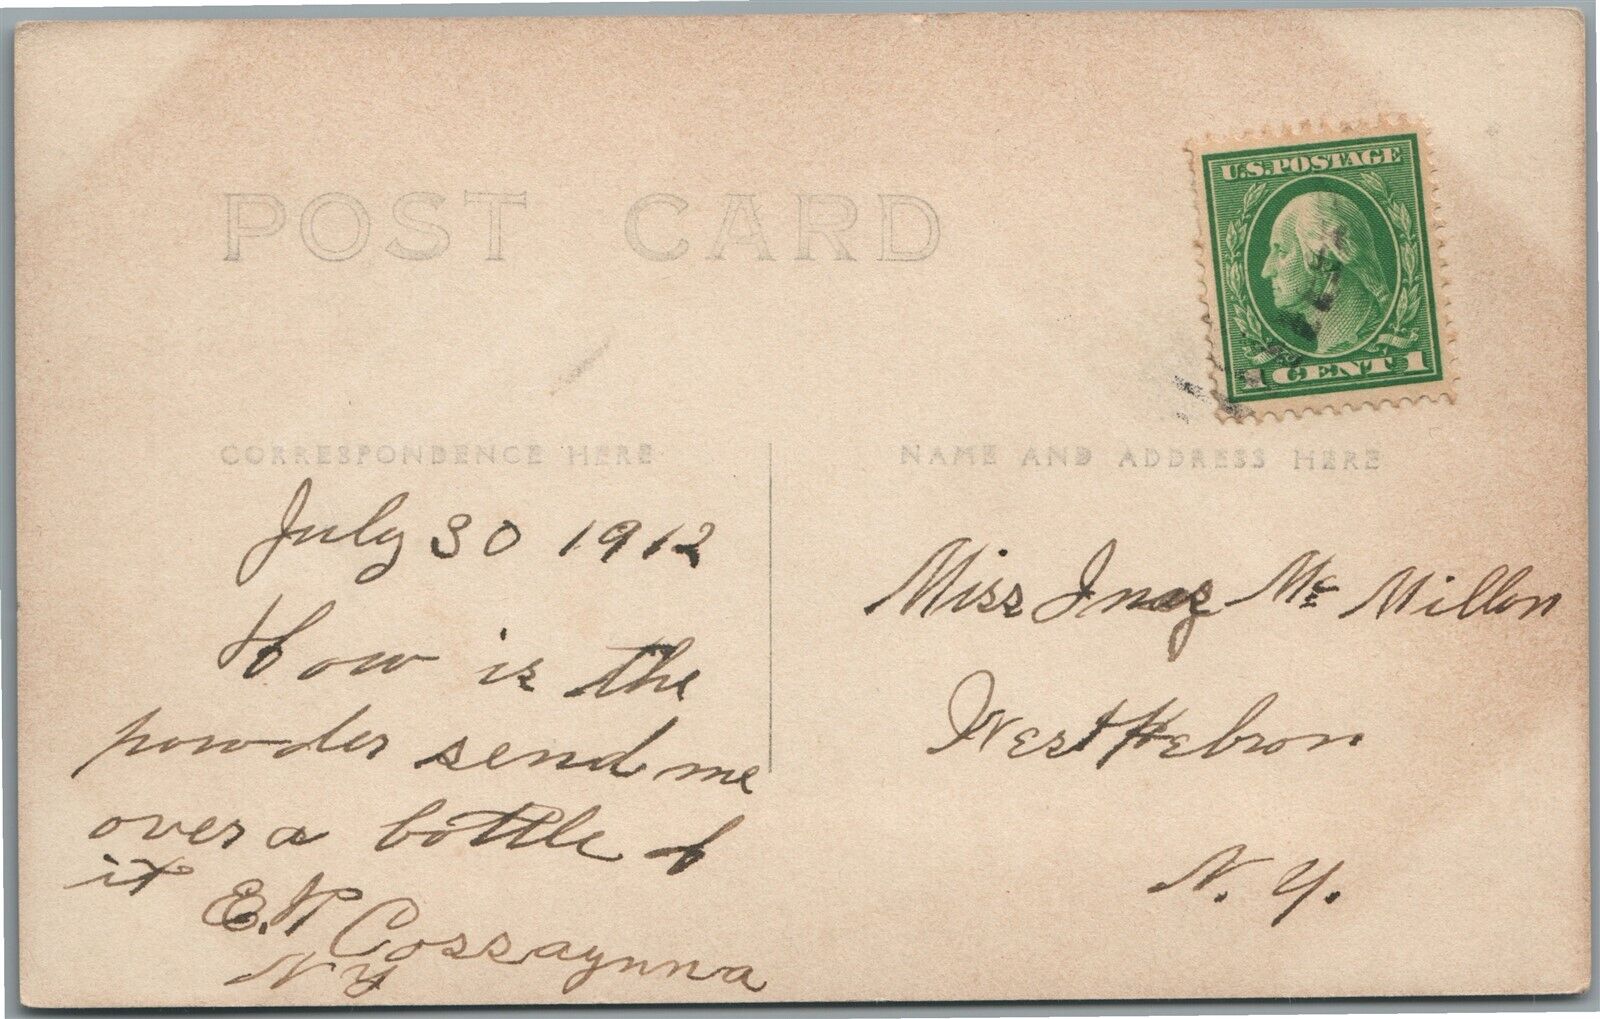 POST CARD
U.S. POSTAGE
1 CENT 1
CORRESPONDENCE HERE
July 30 1912
How is the
powder send me
over a bottle of
it
E. P Cossayunna
N Y
NAME AND ADDRESS HERE
Miss Inez Mc Millon
West Hebron
N. Y.